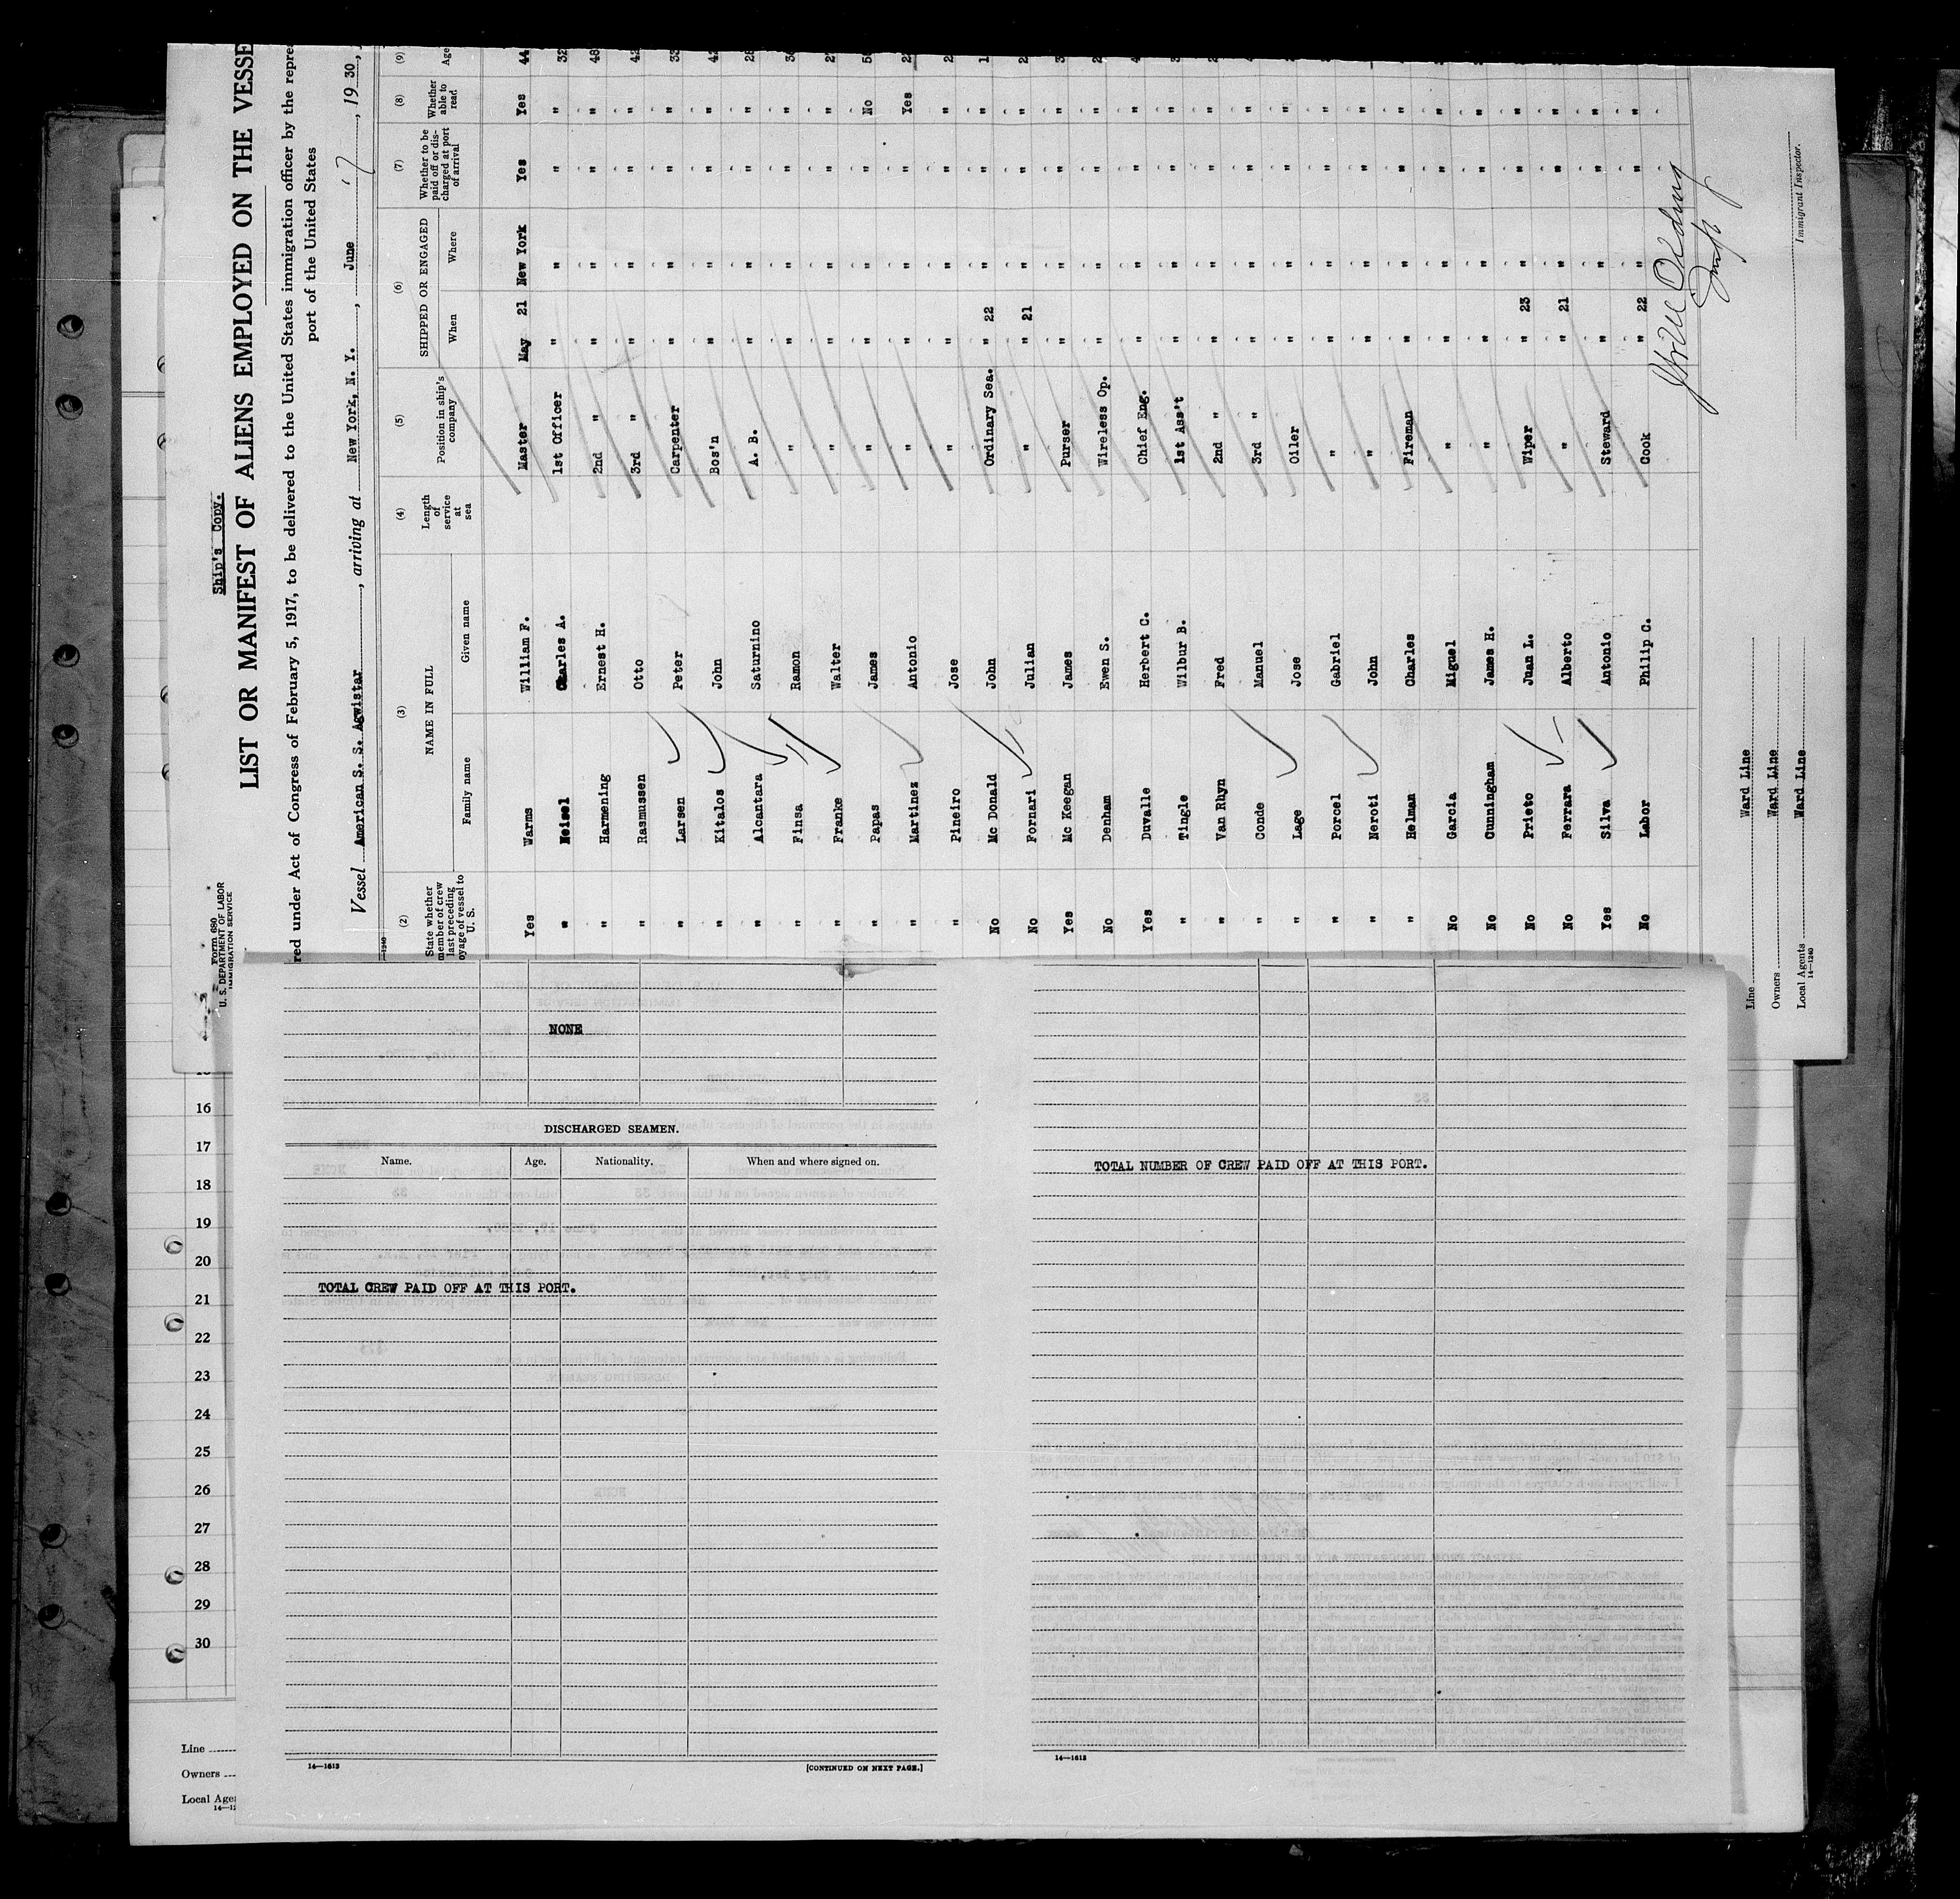 Ship's Copy.
Form 680
U. S. DEPARTMENT OF LABOR
IMMIGRATION SERVICE
LIST OR MANIFEST OF ALIENS EMPLOYED ON THE VESSE
red under Act of Congress of February 5, 1917, to be delivered to the United States immigration officer by the repre
port of the United States
Vessel American S. S. Agwistar, arriving at New York, N. Y., June 17, 1930,
(2) (3) (4) (5) (6) (7) (8) (9)
State whether member of crew last preceding oyage of vessel to U. S.
NAME IN FULL
Family name Given name
Length of service at sea
Position in ship's company
SHIPPED OR ENGAGED
When Where
Whether to be paid off or discharged at port of arrival
Whether able to read
Age
Yes Warms William F. Master May 21 New York Yes Yes 44
" Meisel Charles A. 1st Officer " " " " 32
" Harmening Ernest H. 2nd " " " " " 48
" Rasmussen Otto 3rd " " " " " 42
" Larsen Peter Carpenter " " " " 33
" Kitalos John Bos'n " " " " 42
" Alcantara Saturnino A. B. " " " " 28
" Finsa Ramon " " " " " 3
" Franke Walter " " " " " 2
" Papas James " " " " No 5
" Martinez Antonio " " " " Yes 2
" Pineiro Jose " " " " " 2
No Mc Donald John Ordinary Sea. " 22 " " " 1
No Fornari Julian " " 21 " " " 2
Yes Mc Keegan James Purser " " " " 3
No Denham Ewen S. Wireless Op. " " " " 2
Yes Duvalle Herbert C. Chief Eng. " " " " 4
" Tingle Wilbur B. 1st Ass't " " " " 3
" Van Rhyn Fred 2nd " " " " " 2
" Conde Manuel 3rd " " " " " 4
" Lage Jose Oiler " " " "
" Porcel Gabriel " " " " "
" Neroti John " " " " "
" Helman Charles Fireman " " " "
No Garcia Miguel " " " " "
No Cunningham James H. " " " " "
No Prieto Juan L. Wiper " 23 " " "
No Ferrara Alberto " " 21 " " "
Yes Silva Antonio Steward " " " "
No Labor Philip C. Cook " 22 " " "
Line Ward Line
Owners Ward Line
Local Agents Ward Line
14—1240
Immigrant Inspector.
NONE
DISCHARGED SEAMEN.
Name. Age. Nationality. When and where signed on.
TOTAL CREW PAID OFF AT THIS PORT.
14—1613
[CONTINUED ON NEXT PAGE.]
TOTAL NUMBER OF CREW PAID OFF AT THIS PORT.
14—1613
16
17
18
19
20
21
22
23
24
25
26
27
28
29
30
Line
Owners
Local Age